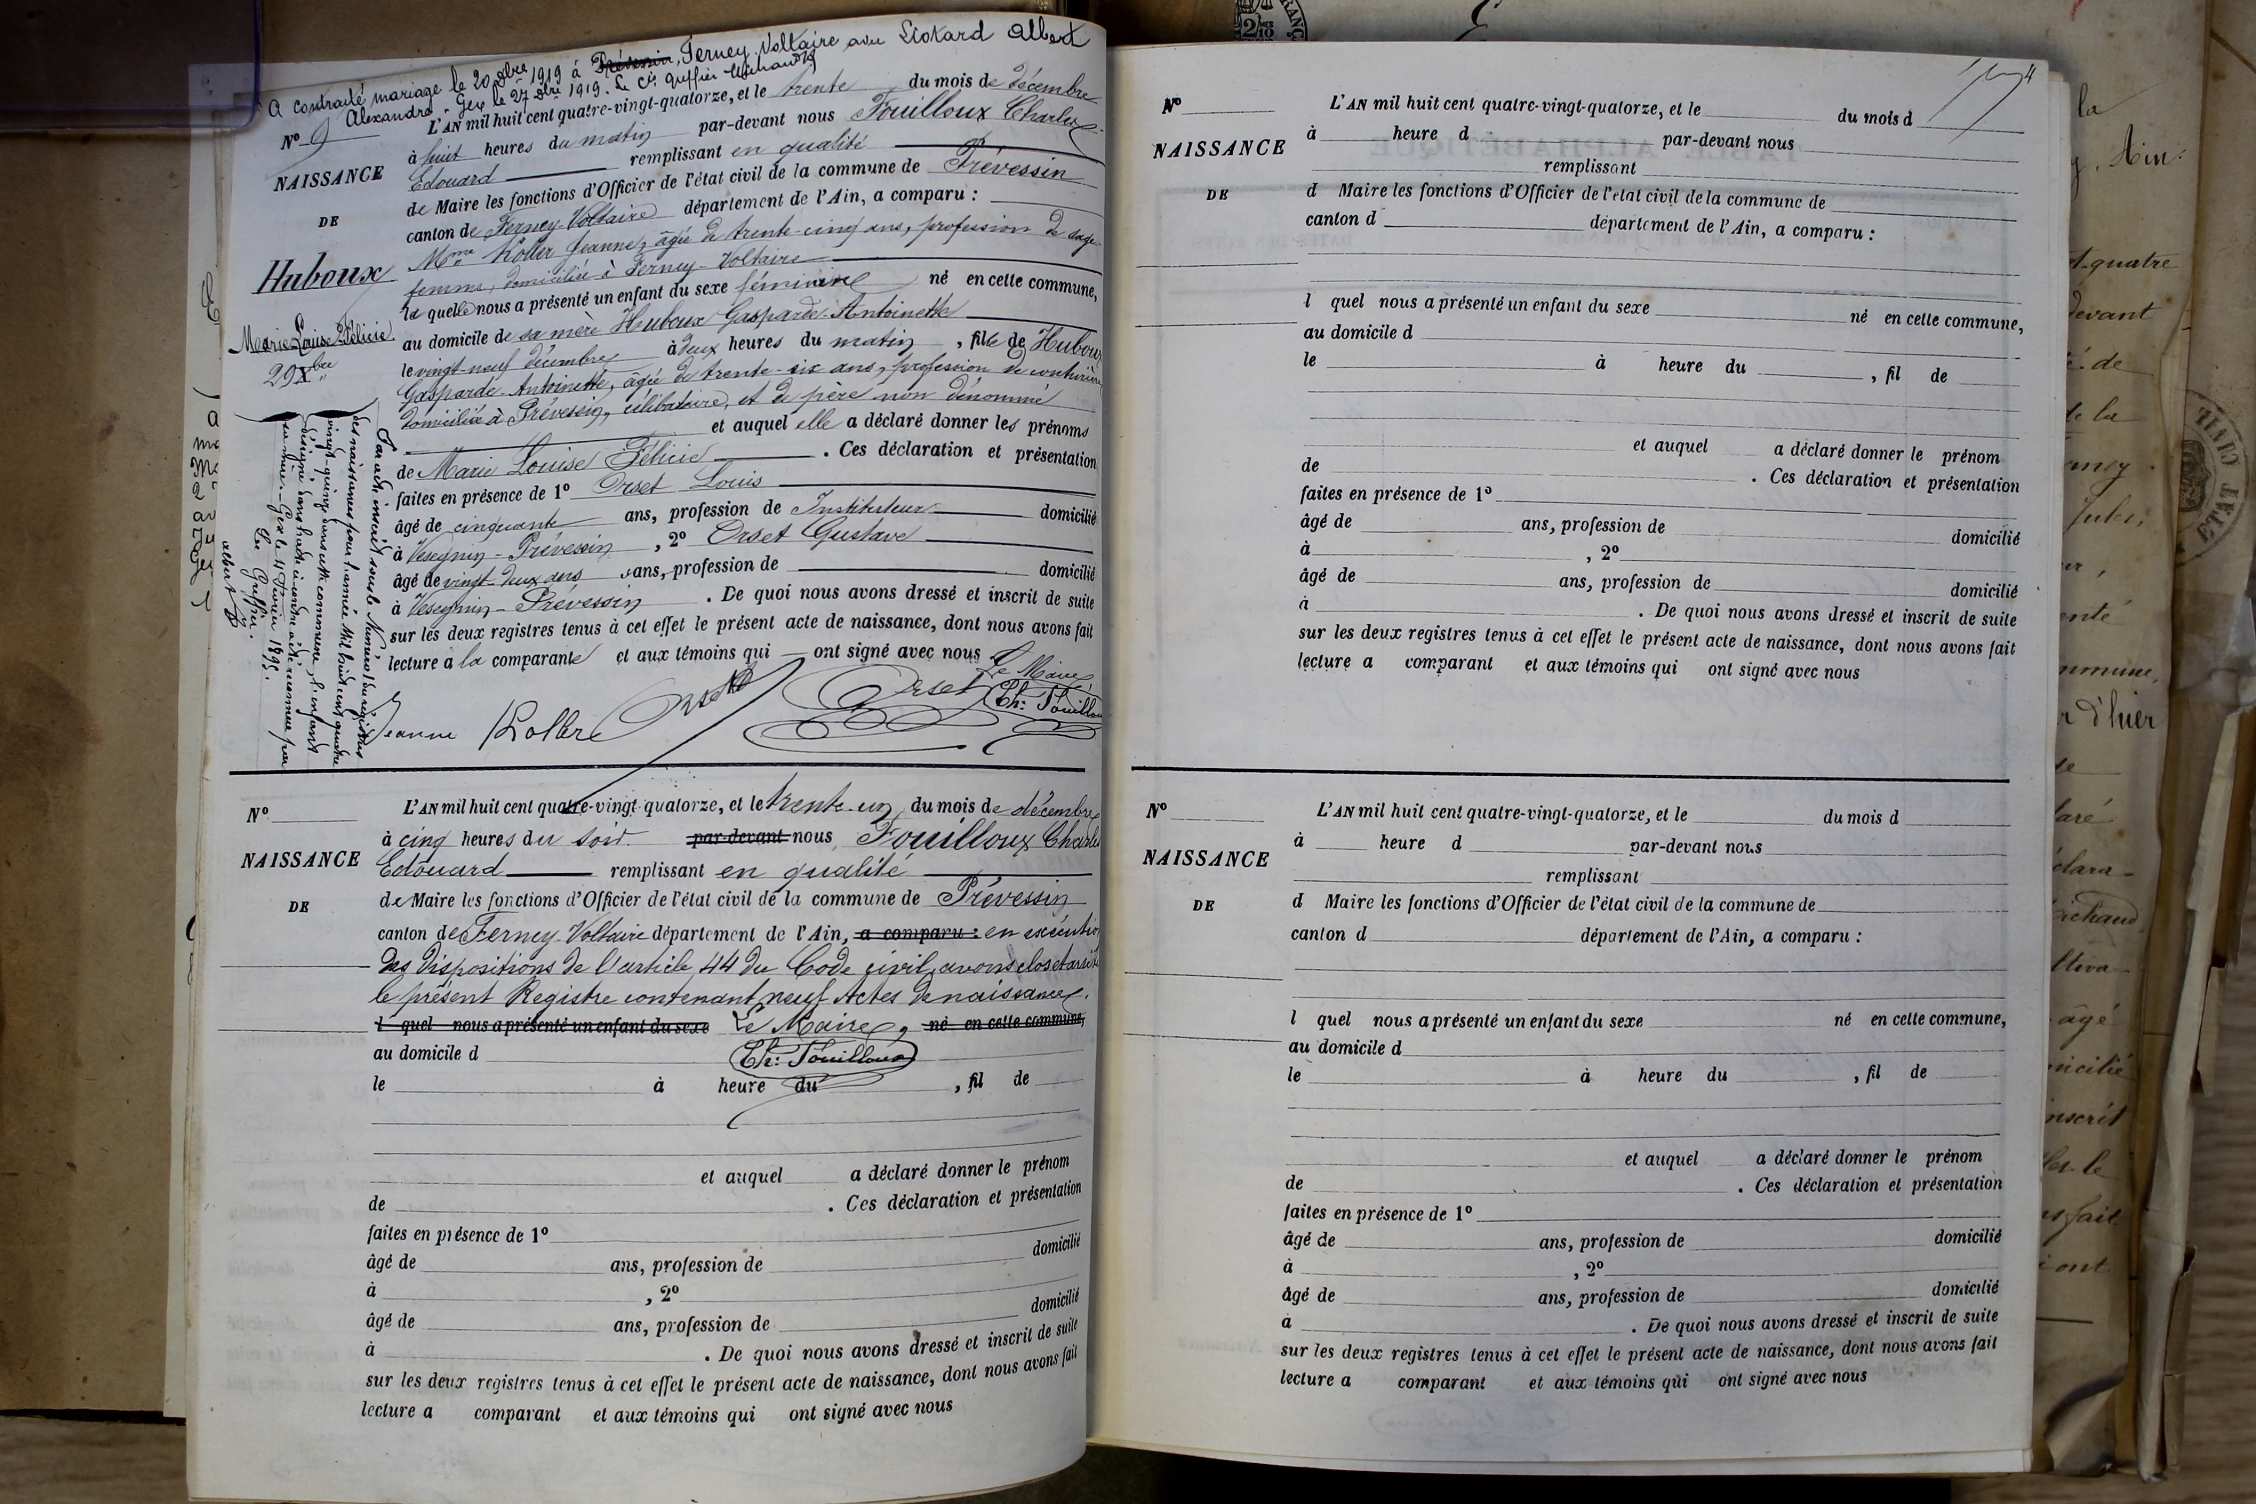 A contracté mariage le 20 Xbre 1919 à Prévessin, Ferney-Voltaire avec Liotard Albert
Alexandre - Gex le 27 Xbre 1919. Le Cis Greffier
N° 9
NAISSANCE
DE
Huboux
Marie Louise Félicie
29 Xbre
L'AN mil huit cent quatre-vingt-quatorze, et le trente du mois de décembre
à huit heures du matin par-devant nous Fouilloux Charles
Edouard remplissant en qualité
de Maire les fonctions d'Officier de l'état civil de la commune de Prévessin
canton de Ferney-Voltaire département de l'Ain, a comparu :
Mme Koller Jeanne, âgée de trente-cinq ans, profession de sage-
femme, domiciliée à Ferney-Voltaire
la quelle nous a présenté un enfant du sexe féminine né en cette commune,
au domicile de sa mère Huboux Gasparde-Antoinette
le vingt-neuf décembre à deux heures du matin, fille de Huboux
Gasparde-Antoinette, âgée de trente-six ans, profession de couturière
domiciliée à Prévessin, célibataire, et de père non dénommé
et auquel elle a déclaré donner les prénoms
de Marie Louise Félicie. Ces déclaration et présentation
faites en présence de 1° Orset Louis
âgé de cinquante ans, profession de Instituteur domicilié
à Vesegnin-Prévessin, 2° Orset Gustave
âgé de vingt-deux ans ans, profession de domicilié
à Vesegnin-Prévessin. De quoi nous avons dressé et inscrit de suite
sur les deux registres tenus à cet effet le présent acte de naissance, dont nous avons fait
lecture à la comparante et aux témoins qui ont signé avec nous
Le Maire,
Jeanne Koller Orset Orset Ch: Fouilloux
Par acte inscrit sous le Numéro 1 du registre
des naissances pour l'année Mil huit cent quatre
vingt-quinze dans cette commune, l'enfant
désigné dans l'acte ci-contre a été reconnue par
sa mère - Gex le 4 Février 1895.
Le Greffier.
N°
NAISSANCE
DE
L'AN mil huit cent quatre-vingt-quatorze, et le trente-un du mois de décembre
à cinq heures du soir par-devant nous, Fouilloux Charles
Edouard remplissant en qualité
de Maire les fonctions d'Officier de l'état civil de la commune de Prévessin
canton de Ferney-Voltaire département de l'Ain, a comparu : en exécution
des dispositions de l'article 44 du Code civil, avons clos et arrêté
le présent Registre contenant neuf Actes de naissances.
l quel nous a présenté un enfant du sexe Le Maire, né en cette commune,
au domicile d Ch: Fouilloux
le à heure du , fil de
et auquel a déclaré donner le prénom
de . Ces déclaration et présentation
faites en présence de 1°
âgé de ans, profession de domicilié
à , 2°
âgé de ans, profession de domicilié
à . De quoi nous avons dressé et inscrit de suite
sur les deux registres tenus à cet effet le présent acte de naissance, dont nous avons fait
lecture a comparant et aux témoins qui ont signé avec nous
N°
NAISSANCE
DE
L'AN mil huit cent quatre-vingt-quatorze, et le du mois d
à heure d par-devant nous
remplissant
d Maire les fonctions d'Officier de l'état civil de la commune de
canton d département de l'Ain, a comparu :
l quel nous a présenté un enfant du sexe né en cette commune,
au domicile d
le à heure du , fil de
et auquel a déclaré donner le prénom
de . Ces déclaration et présentation
faites en présence de 1°
âgé de ans, profession de domicilié
à , 2°
âgé de ans, profession de domicilié
à . De quoi nous avons dressé et inscrit de suite
sur les deux registres tenus à cet effet le présent acte de naissance, dont nous avons fait
lecture a comparant et aux témoins qui ont signé avec nous
N°
NAISSANCE
DE
L'AN mil huit cent quatre-vingt-quatorze, et le du mois d
à heure d par-devant nous
remplissant
d Maire les fonctions d'Officier de l'état civil de la commune de
canton d département de l'Ain, a comparu :
l quel nous a présenté un enfant du sexe né en cette commune,
au domicile d
le à heure du , fil de
et auquel a déclaré donner le prénom
de . Ces déclaration et présentation
faites en présence de 1°
âgé de ans, profession de domicilié
à , 2°
âgé de ans, profession de domicilié
à . De quoi nous avons dressé et inscrit de suite
sur les deux registres tenus à cet effet le présent acte de naissance, dont nous avons fait
lecture a comparant et aux témoins qui ont signé avec nous